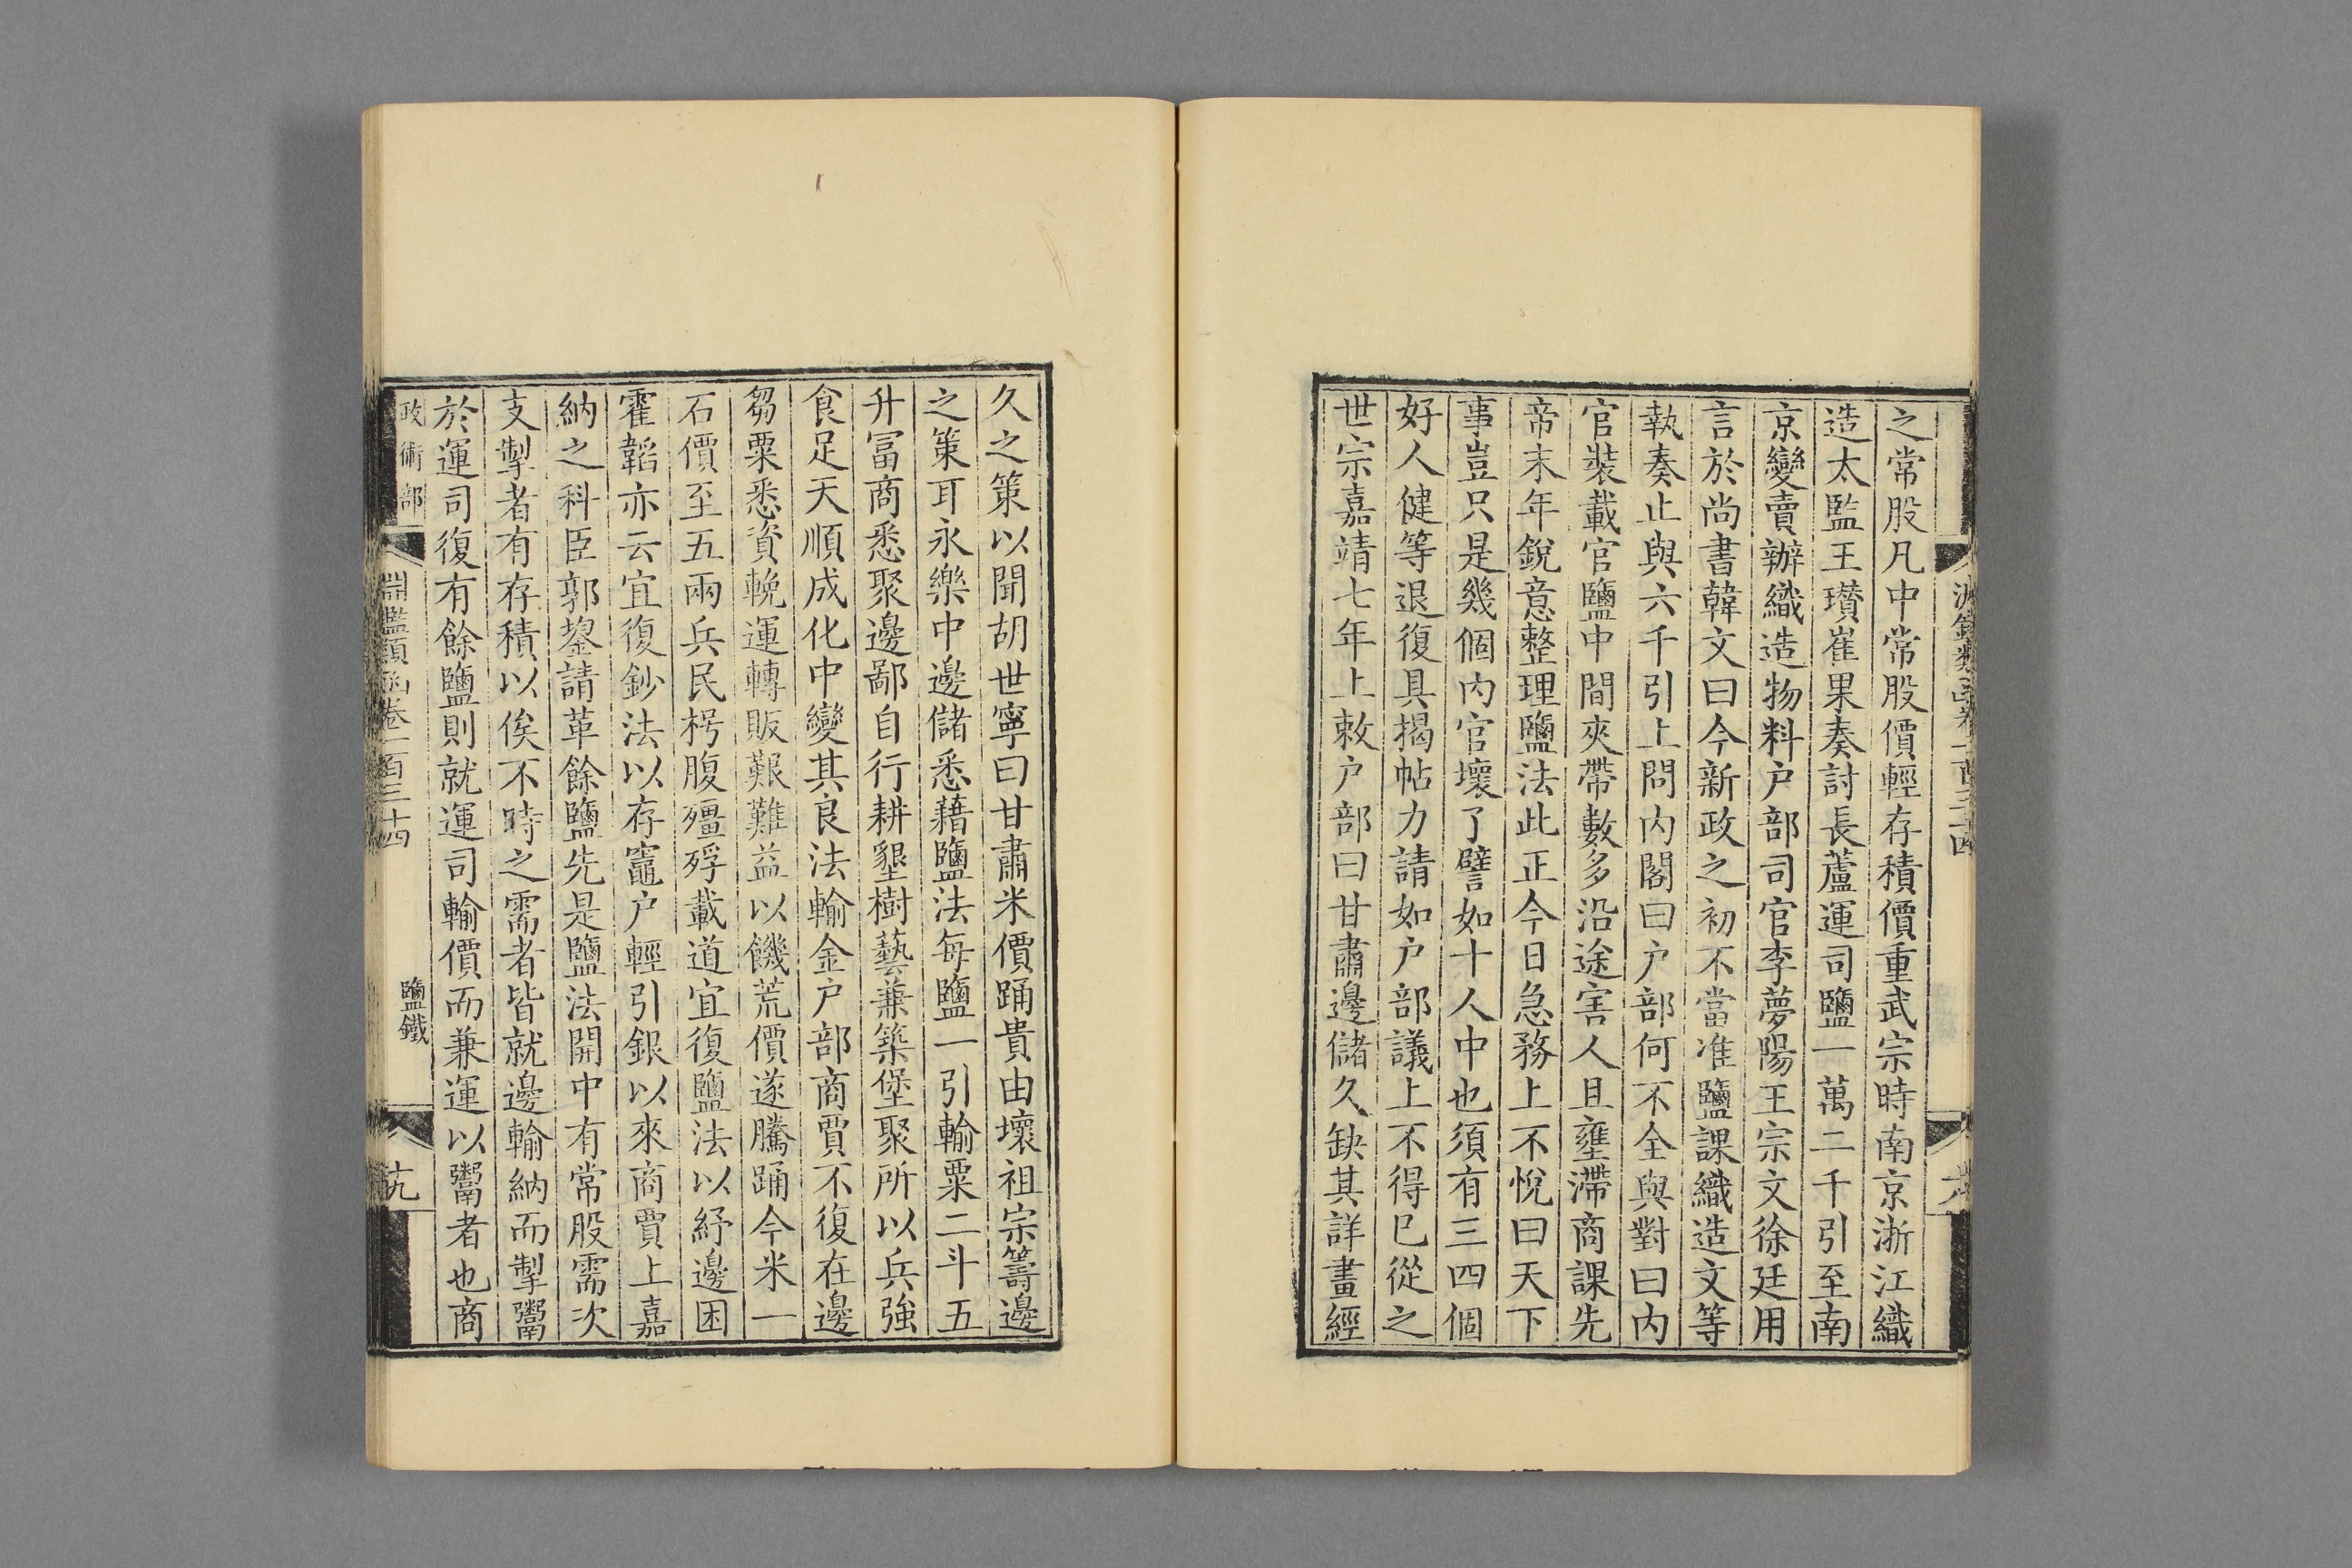 之常股凡中常股價輕存積價重武宗時南京浙江織
造太監王瓚崔果奏討長蘆運司鹽一萬二千引至南
京變賣辦織造物料户部司官李夢陽王宗文徐廷用
言於尚書韓文曰今新政之初不當准鹽課織造文等
執奏止與六千引上問内閣曰户部何不全與對曰内
官裝載官鹽中間夾帶數多沿途害人且壅滯商課先
帝末年銳意整理鹽法此正今日急務上不悅曰天下
事豈只是幾個内官壞了譬如十人中也須有三四個
好人健等退復具揭帖力請如户部議上不得已從之
世宗嘉靖七年上敕户部曰甘肅邊儲久缺其詳畫經
久之策以聞胡世寧曰甘肅米價踊貴由壞祖宗籌邊
之策耳永樂中邊儲悉藉鹽法每鹽一引輸粟二斗五
升富商悉聚邊鄙自行耕墾樹藝兼築堡聚所以兵強
食足天順成化中變其良法輸金户部商賈不復在邊
芻粟悉資輓運轉販艱難益以饑荒價遂騰踊今米一
石價至五兩兵民枵腹殭殍載道宜復鹽法以紓邊困
霍韜亦云宜復鈔法以存竈户輕引銀以來商賈上嘉
納之科臣郭鋆請革餘鹽先是鹽法開中有常股需次
支掣者有存積以俟不時之需者皆就邊輸納而掣鬻
於運司復有餘鹽則就運司輸價而兼運以鬻者也商
政術部
淵鑑類函卷一百三十四
鹽鐵